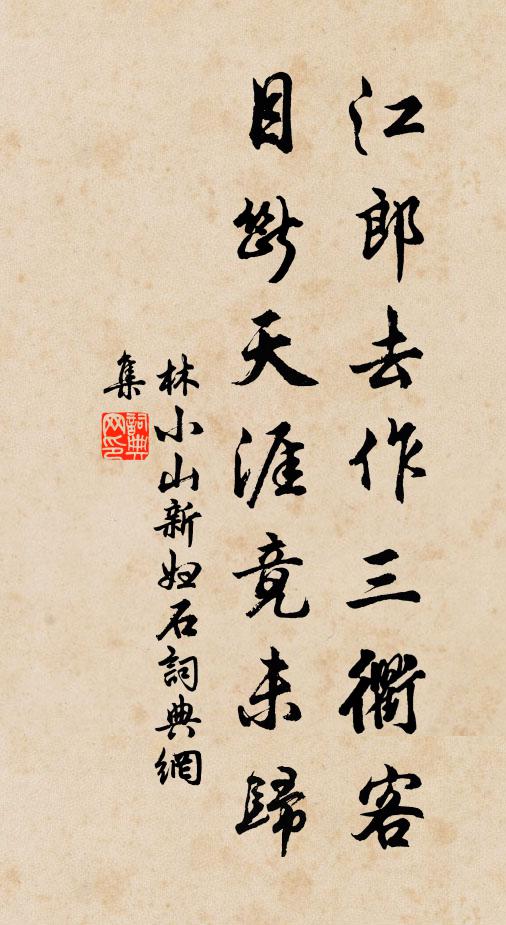 江郎去作三衢客
目斷天涯竟未歸
林小山新妇石詞典網
集
詞典网印